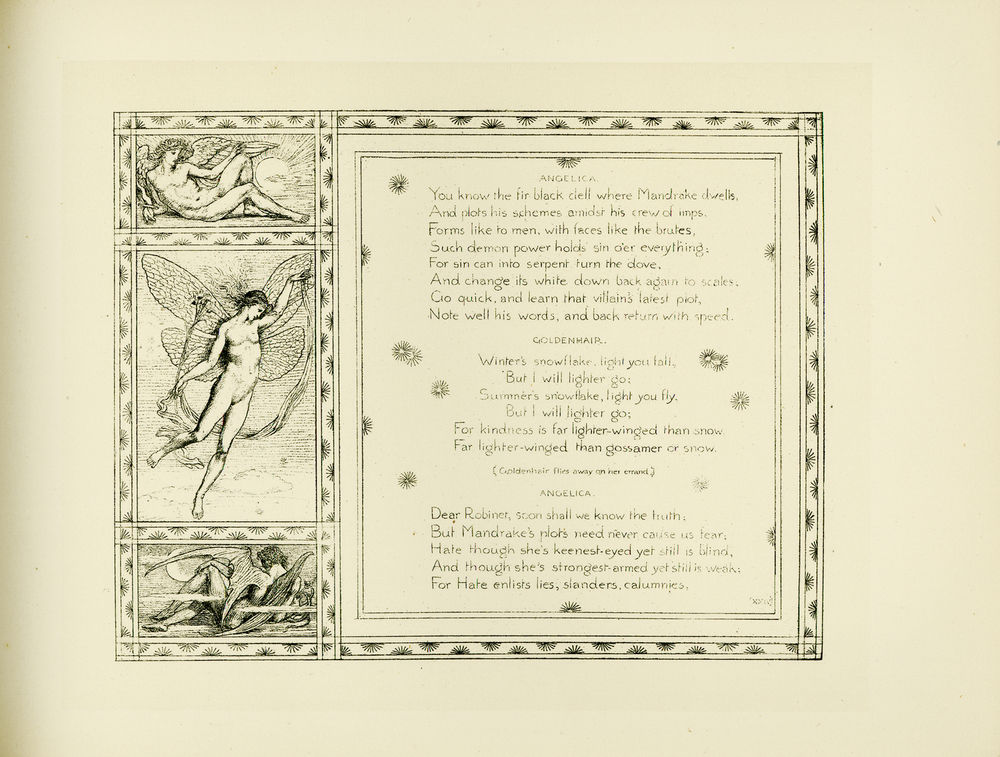 ANGELICA.
You know the fir black dell where Mandrake dwells,
And plots his schemes amidst his crew of imps,
Forms like to men, with faces like the brutes,
Such demon power holds sin o'er everything;
For sin can into serpent turn the dove,
And change its white down back again to scales.
Go quick, and learn that villain's latest plot,
Note well his words, and back return with speed.
GOLDENHAIR.
Winter's snowflake, light you fall,
But I will lighter go;
Summer's snowflake, light you fly,
But I will lighter go;
For kindness is far lighter-winged than snow
Far lighter-winged than gossamer or snow.
(Goldenhair flies away on her errand.)
ANGELICA.
Dear Robinet, soon shall we know the truth;
But Mandrake's plots need never cause us fear;
Hate though she's keenest-eyed yet still is blind,
And though she's strongest-armed yet still is weak;
For Hate enlists lies, slanders, calumnies,